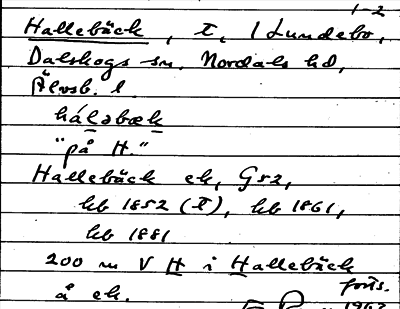 1-2
Hallebäck, t, / Lundebo,
Dalskogs sn, Nordals hd,
Älvsb. l.
hálsbæk
"på H."
Hallebäck ek, G52,
hb 1852 (t), hb 1861,
hb 1881
200 m V H i Hallebäck
å ek. forts.
1963